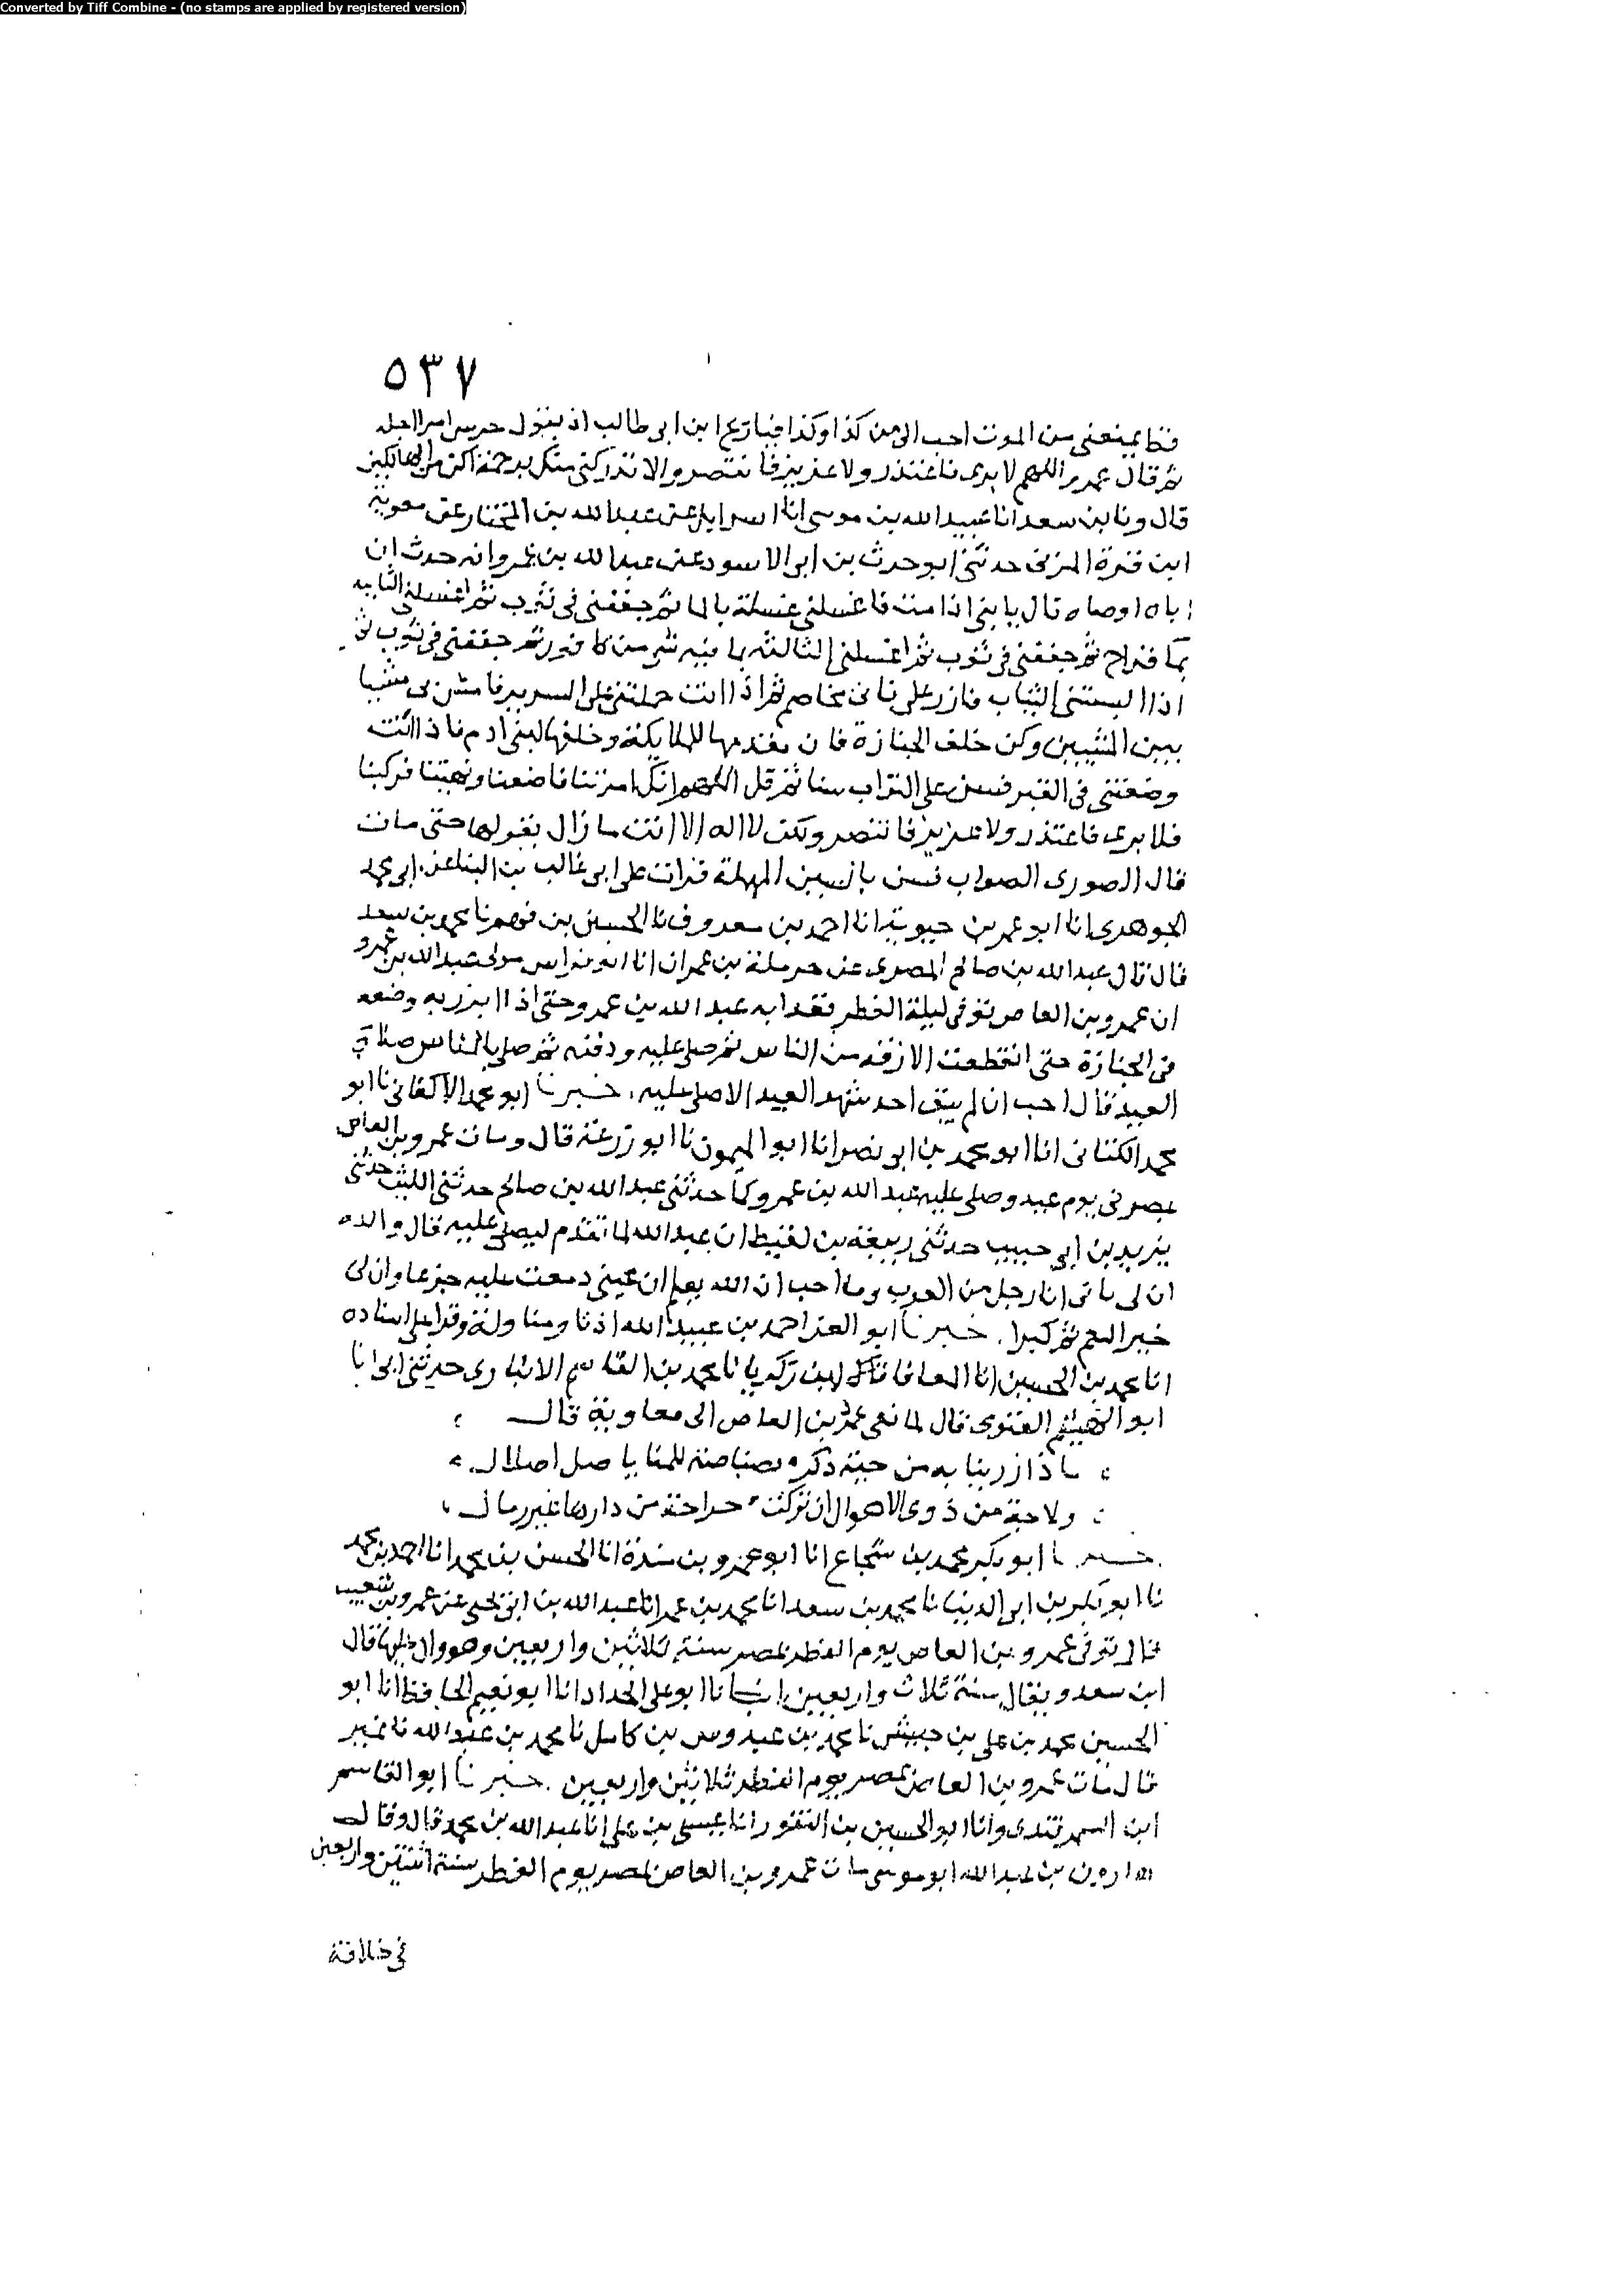 Converted by Tiff Combine - (no stamps are applied by registered version)
٥٣٧
فتطا يمنعنى من الموت احب الى من كذا وكذا فيا ويح ابن ابى طالب اذ يقول حرس امرا اجله
ثم قال عمرو اللهم لا برى فاعتذر ولا عزيز فانتصر والا تدركنى منك برحمة اكن من الهالكين
قال ونا بن سعد انا عبيد الله بن موسى انا اسرايل عن عبد الله بن المختار عن معوية
ابن قرة المزنى حدثنى ابو حرث بن ابى الاسود عن عبد الله بن عمرو انه حدث ان
اباه اوصاه قال يا بنى اذا مت فاغسلنى غسلة بالما ثم جففنى فى ثوب ثم اغسلنى الثانيه
بما قراح ثم جففنى فى ثوب ثم اغسلنى الثالثه بما فيه شى من كافور ثم جففنى فى ثوب ثم
اذا البستنى الثياب فازر على فانى مخاصم ثم اذا انت حملتنى على السرير فامش بى مشيا
بين المشيين وكن خلف الجنازة فان مقدمها للملايكة وخلفها لبنى ادم فاذا انت
وضعتنى فى القبر فسن على التراب سنا ثم قل اللهم انك امرتنا فاضعنا ونهيتنا فركبنا
فلا برى فاعتذر ولا عزيز فانتصر ولكن لا اله الا انت ما زال يقولها حتى مات
قال الصورى الصواب فسن بالسين المهملة قرات على ابى غالب بن البنا عن ابى محمد
الجوهرى انا ابو عمر بن حيوية انا احمد بن معروف نا الحسين بن فهم نا محمد بن سعد
قال قال عبد الله بن صالح المصرى عن حرملة بن عمران انا ابو فراس مولى عبد الله بن عمرو
ان عمرو بن العاص توفى ليلة الفطر فغدا به عبد الله بن عمرو حتى اذا ابرز به وضعه
فى الجنازة حتى انقطعت الازقه من الناس ثم صلى عليه ودفنه ثم صلى بالناس صلاة
العيد قال احب ان لم يبق احد شهد العيد الا صلى عليه. خبرنا ابو محمد الاكفانى نا ابو
محمد الكتانى انا ابو محمد بن ابى نصر انا ابو الميمون نا ابو زرعة قال ومات عمرو بن العاص
بمصر فى يوم عيد وصلى عليه عبد الله بن عمرو كما حدثنى عبد الله بن صالح حدثنى الليث حدثنى
يزيد بن ابى حبيب حدثنى ربيعة بن لقيط ان عبد الله لما تقدم ليصلى عليه قال والله
ان لى بابى انا رجل من العرب وما احب ان الله يعلم ان عينى دمعت عليه جزعا وان لى
خبرنا ابو العز احمد بن عبيد الله اذنا ومناولة وقرا على اسناده
انا محمد بن الحسين انا المعافا بن زكريا نا محمد بن القاسم الانبارى حدثنى ابى انا
ابو الهيثم الغنوى قال لما نعى عمرو بن العاص الى معاوية قال
ماذا رزينا به من حية ذكر نضناضة للمنايا صل اصلال
ولاجة من ذوى الاهوال ان تركت خراجة من دارها غير زمال
خبرنا ابو بكر محمد بن شجاع انا ابو عمرو بن مندة انا الحسن بن محمد انا احمد بن محمد
نا ابو بكر بن ابى الدنيا نا محمد بن سعد انا محمد بن عمر انا عبد الله بن ابى يحيى عن عمرو بن شعيب
قال توفى عمرو بن العاص يوم الفطر بمصر سنة ثلاثين واربعين وهو وال عليها قال
ابن سعد ويقال سنة ثلاث واربعين انبانا ابو على الحداد انا ابو نعيم الحافظ انا ابو
الحسين محمد بن على بن حبيش نا محمد بن عبدوس بن كامل نا محمد بن عبد الله نا نمير
قال مات عمرو بن العاص بمصر يوم الفطر ثلاثين واربعين. خبرنا ابو القاسم
ابن السمرقندى وانا ابو الحسين بن النقور انا عيسى بن على انا عبد الله بن محمد قال وقال
هارون بن عبد الله ابو موسى مات عمرو بن العاص بمصر يوم الفطر سنة اثنتين واربعين
فى خلافة